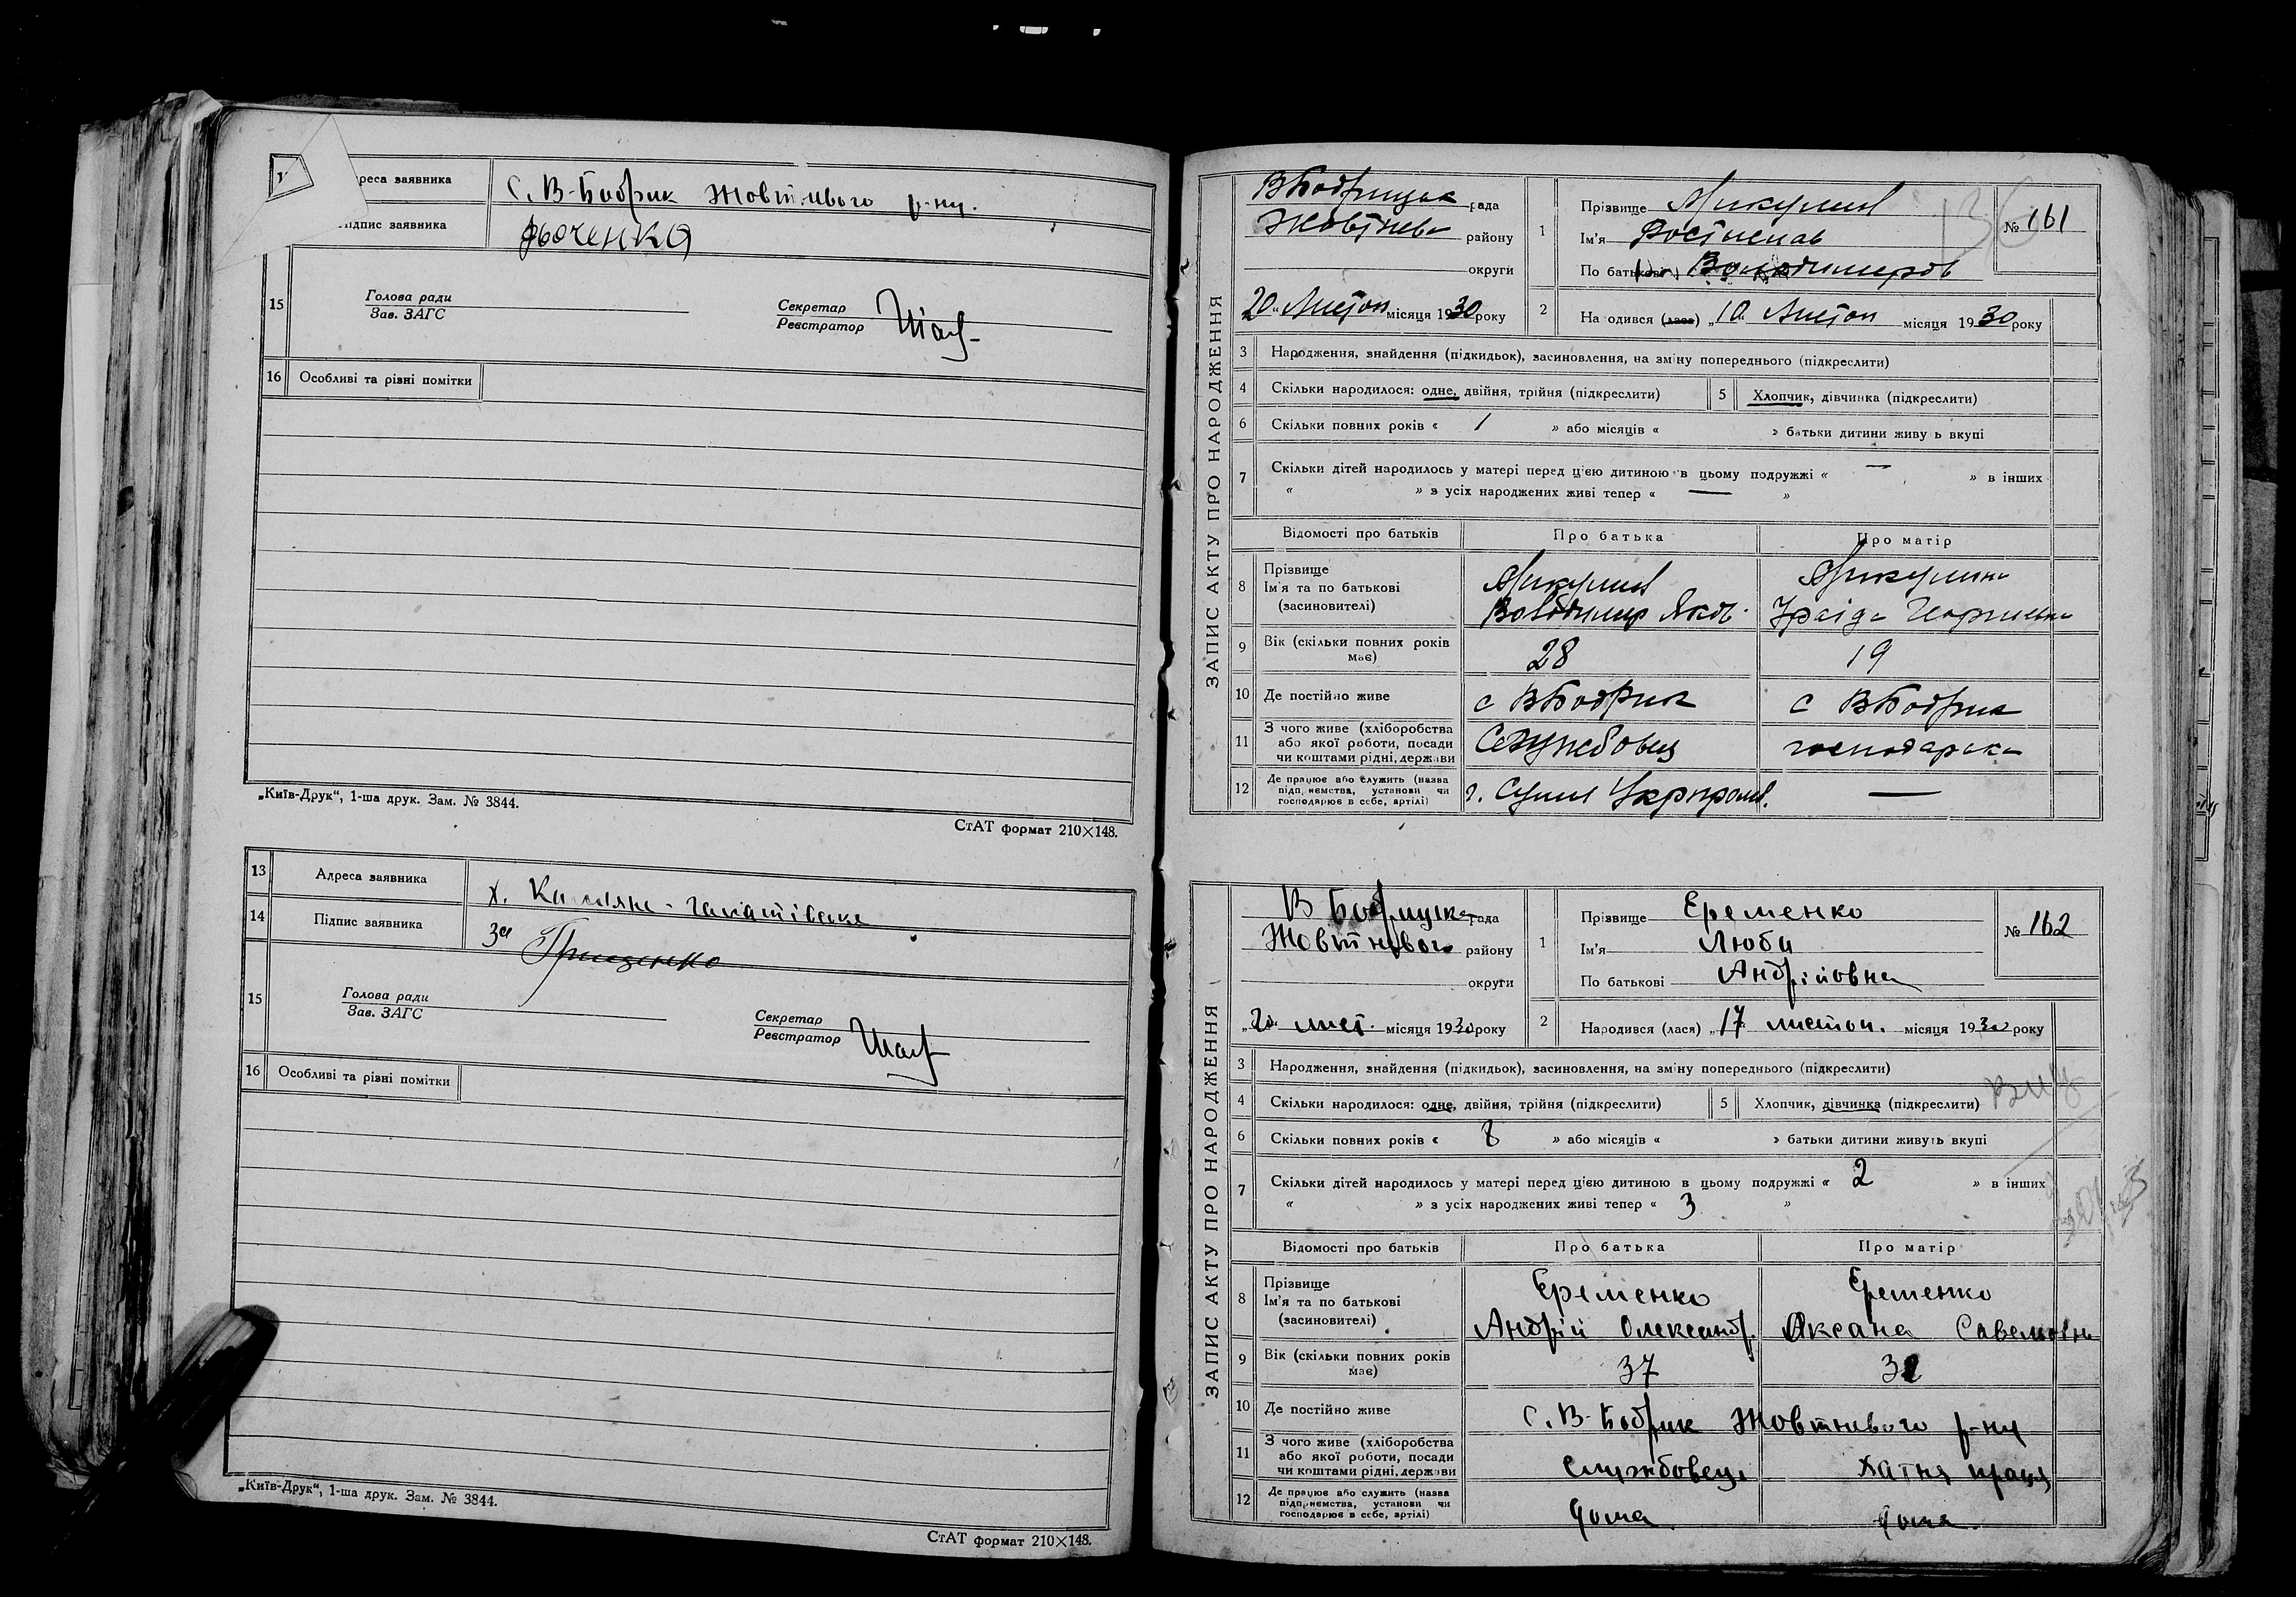 реса заявника С. В-Бобрик Жовтневого р-ну.
ідпис заявника
15 Голова ради Зав. ЗАГС Секретар Реєстратор
16 Особливі та різні помітки
„Київ-Друк“, 1-ша друк. Зам. № 3844.
СтАТ формат 210×148.
13 Адреса заявника х.
14 Підпис заявника за Грищенко
15 Голова ради Зав. ЗАГС Секретар Реєстратор
16 Особливі та різні помітки
„Київ-Друк“, 1-ша друк. Зам. № 3844.
СтАТ формат 210×148.
ЗАПИС АКТУ ПРО НАРОДЖЕННЯ
ВБобрицька рада
Жовтнев району
округи
20 Листоп місяця 1930 року
1 Прізвище Микулин
Ім'я Ростислав
По батькові Володимиров
№ 161
2 На одився (лася) „10 Листоп місяця 1930 року
3 Народження, знайдення (підкидьок), засиновлення, на зміну попереднього (підкреслити)
4 Скільки народилося: одне, двійня, трійня (підкреслити) 5 Хлопчик, дівчинка (підкреслити)
6 Скільки повних років « 1 » або місяців « » батьки дитини живу ь вкупі
7 Скільки дітей народилось у матері перед цією дитиною в цьому подружжі « — » в інших
« » з усіх народжених живі тепер « — »
Відомості про батьків Про батька Про матір
8 Прізвище Ім'я та по батькові (засновителі) Микулин Володимир Яков. Микулина
9 Вік (скільки повних років має) 28 19
10 Де постійно живе с ВБобрик с ВБобрик
11 З чого живе (хліборобства або якої роботи, посади чи коштами рідні, держави Службовец господарська
12 Де працює або служить (назва підприємства, установи чи господарює в себе, артілі) г. Суми —
ЗАПИС АКТУ ПРО НАРОДЖЕННЯ
В Бобрицька рада
Жовтневого району
округи
„20 лист. місяця 1930 року
1 Прізвище Еременко
Ім'я Люби
По батькові Андрійовна
№ 162
2 Народився (лася) „17 листоп. місяця 1930 року
3 Народження, знайдення (підкидьок), засиновлення, на зміну попереднього (підкреслити)
4 Скільки народилося: одне, двійня, трійня (підкреслити) 5 Хлопчик, дівчинка (підкреслити)
6 Скільки повних років « 8 » або місяців « » батьки дитини живуть вкупі
7 Скільки дітей народилось у матері перед цією дитиною в цьому подружжі « 2 » в інших
« » з усіх народжених живі тепер « 3 »
Відомості про батьків Про батька Про матір
8 Прізвище Ім'я та по батькові (засиновителі) Еременко Андрій Олександр. Еременко Оксана Савельовна
9 Вік (скільки повних років має) 37 32
10 Де постійно живе С. В-Бобрик Жовтневого р-ну
11 З чого живе (хліборобства або якої роботи, посади чи коштами рідні, держави службовець Хатня праця
12 Де працює або служить (назва підприємства, установи чи господарює в себе, артілі) дома дома